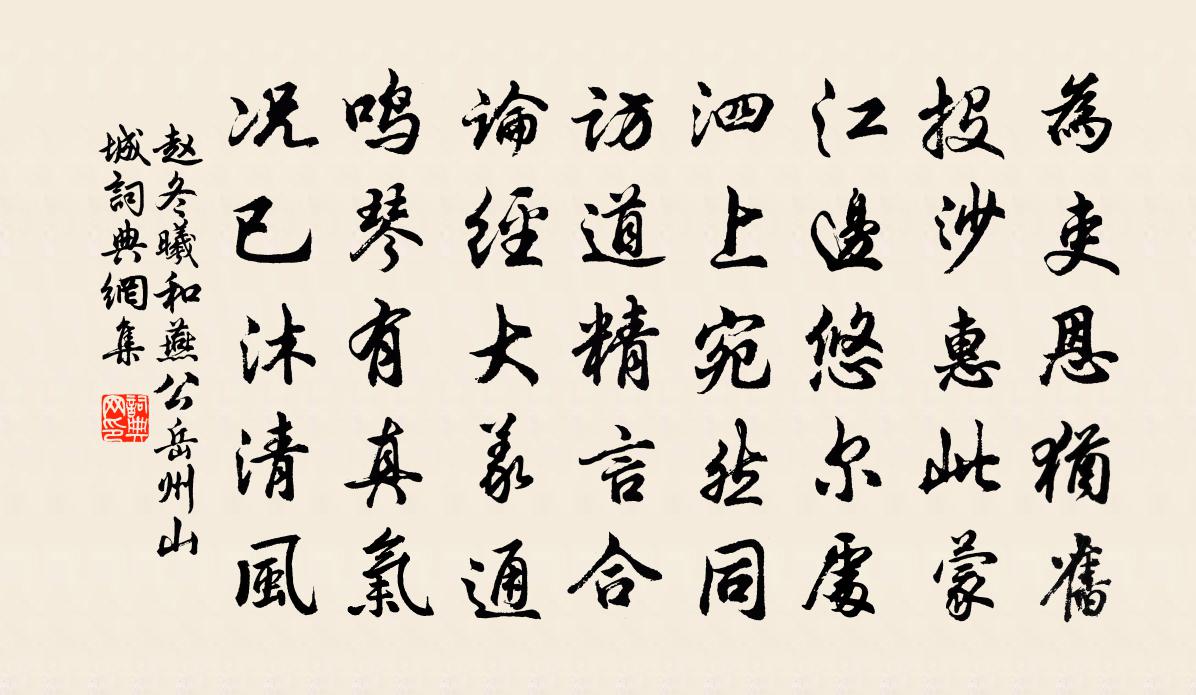 為吏恩猶舊
投沙惠此蒙
江邊悠尔處
泗上宛然同
訪道精言合
論經大義通
鳴琴有真氣
況已沐清風
赵冬曦和燕公岳州山
城詞典網集
詞典网印